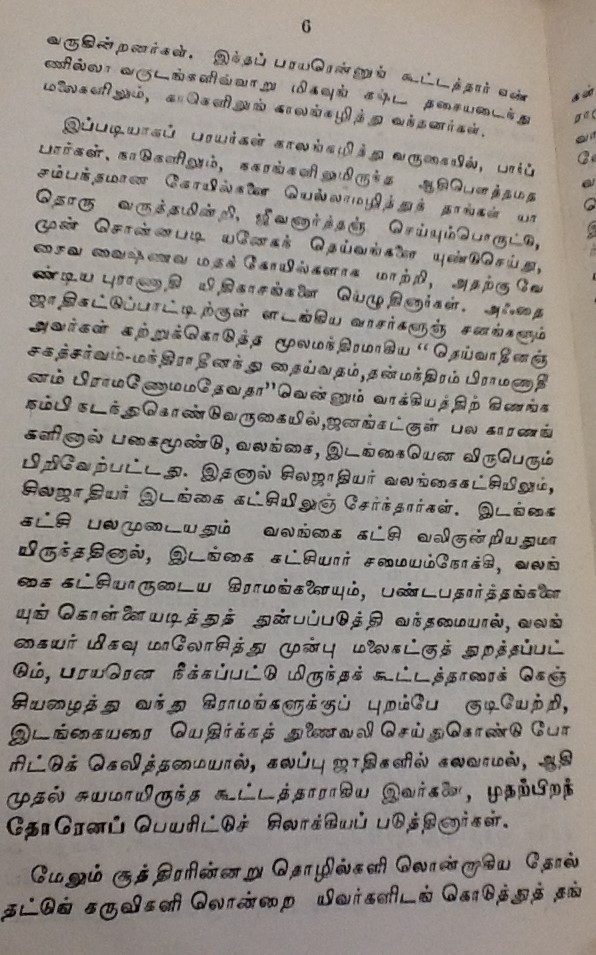 6
வருகின்றனர்கள். இந்தப் பரயரென்னுங் கூட்டத்தார் எண்
ணில்லா வருடங்களிவ்வாறு மிகவுங் கஷ்ட தசையடைந்து
மலைகளிலும், காடுகளிலுங் காலங்கழித்து வந்தனர்கள்.
இப்படியாகப் பரயர்கள் காலங்கழித்து வருகையில், பார்ப்
பார்கள். நாடுகளிலும், நகரங்களிலுமிருந்த ஆதிபௌத்தமத
சம்பந்தமான கோயில்களை யெல்லாமழித்துத் தாங்கள் யா
தொரு வருத்தமின்றி, ஜீவனார்த்தஞ் செய்யும்பொருட்டு,
முன் சொன்னபடி யனேகந் தெய்வங்களை யுண்டுசெய்து,
சைவ வைஷ்ணவ மதக் கோயில்களாக மாற்றி, அதற்கு வே
ண்டிய புராணாதி யிதிகாசங்களை யெழுதினார்கள். அஃதை
ஜாதிகட்டுப்பாட்டிற்குள் ளடங்கிய வாசர்களுஞ் சனங்களும்
அவர்கள் கற்றுக்கொடுத்த மூலமந்திரமாகிய “தெய்வாதீனஞ்
சகத்சர்வம்-மந்திராதீனந்து தைய்வதம்,தன்மந்திரம் பிராமணாதீ
னம் பிராமணோமமதேவதா”வென்னும் வாக்கியத்திற் கிணங்க
நம்பி நடந்துகொண்டுவருகையில்,ஜனங்கட்குள் பல காரணங்
களினால் பகைமூண்டு, வலங்கை, இடங்கையென விருபெரும்
பிறிவேற்பட்டது. இதனால் சிலஜாதியர் வலங்கைகட்சியிலும்,
சிலஜாதியர் இடங்கை கட்சியிலுஞ் சேர்ந்தார்கள். இடங்கை
கட்சி பலமுடையதும் வலங்கை கட்சி வலிகுன்றியதுமா
யிருந்ததினால், இடங்கை கட்சியார் சமையம்நோக்கி, வலங்
கை கட்சியாருடைய கிராமங்களையும், பண்டபதார்த்தங்களை
யுங் கொள்ளையடித்துத் துன்பப்படுத்தி வந்தமையால், வலங்
கையர் மிகவு மாலோசித்து முன்பு மலைகட்குத் துறத்தப்பட்
டும், பரயரென நீக்கப்பட்டு மிருந்தக் கூட்டத்தாரைக் கெஞ்
சியழைத்து வந்து கிராமங்களுக்குப் புறம்பே குடியேற்றி,
இடங்கையரை யெதிர்க்கத் துணைவலி செய்துகொண்டு போ
ரிட்டுக் கெலித்தமையால், கலப்பு ஜாதிகளில் கலவாமல், ஆதி
முதல் சுயமாயிருந்த கூட்டத்தாராகிய இவர்களை, முதற்பிறந்
தோரெனப் பெயரிட்டுச் சிலாக்கியப் படுத்தினார்கள்.
மேலும் சூத்திரரின்னறு தொழில்களி லொன்றாகிய தோல்
தட்டுங் கருவிகளி லொன்றை யிவர்களிடங் கொடுத்துத் தங்